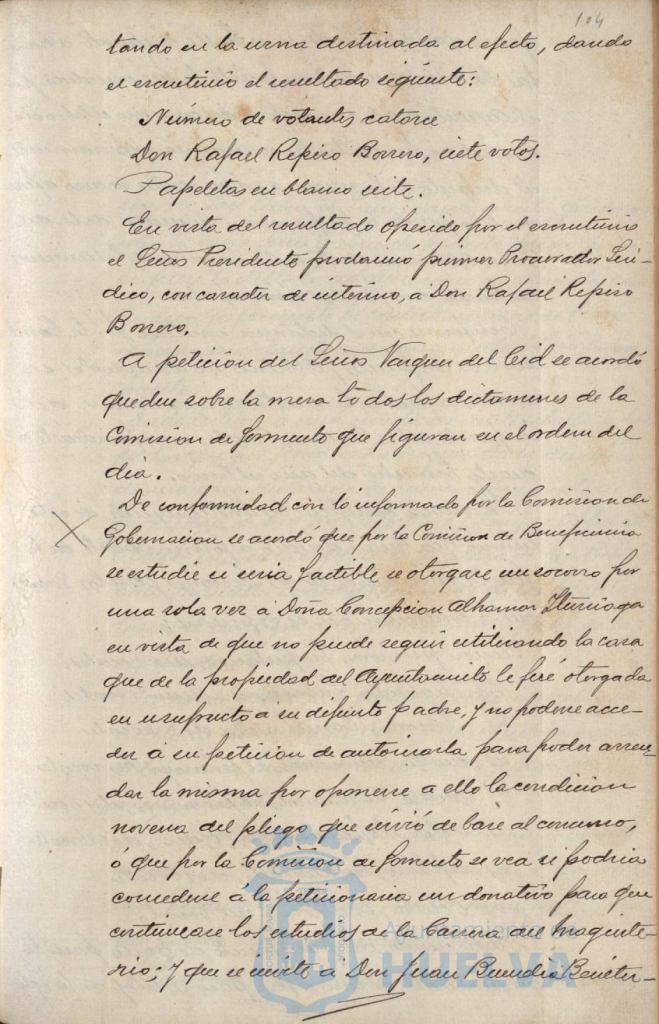 104
tando en la urna destinada al efecto, dando
el escrutinio el resultado siguiente:
Número de votantes catorce
Don Rafael Repiso Borrero, siete votos.
Papeletas en blanco siete.
En vista del resultado ofrecido por el escrutinio
el Señor Presidente proclamó primer Procurador Sín-
dico, con caracter de interino, a Don Rafael Repiso
Borrero.
A petición del Señor Vazquez del Cid se acordó
queden sobre la mesa todos los dictamenes de la
Comision de Fomento que figuran en el orden del
dia.
De conformidad con lo informado por la Comision de
Gobernacion se acordó que por la Comision de Beneficencia
se estudie si seria factible se otorgase un socorro por
una sola vez á Doña Concepcion Alhamar
en vista de que no puede seguir utilizando la casa
que de la propiedad del Ayuntamiento le fué otorgada
en usufructo á su difunto padre, y no poderse acce-
der á su peticion de autorizarla para poder arren-
dar la misma por oponerse a ello la condicion
novena del pliego que sirvió de base al concurso,
ó que por la Comision de Fomento se vea si podria
concederse á la peticionaria un donativo para que
continuase los estudios de la Carrera del Magiste-
rio; y que se invite a Don Juan Buendia
Ayuntamiento
HUELVA